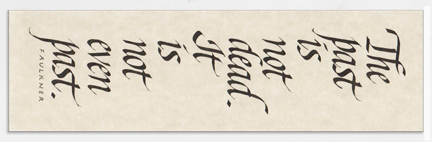 The
past
is
not
dead.
It
is
not
even
past.
FAULKNER